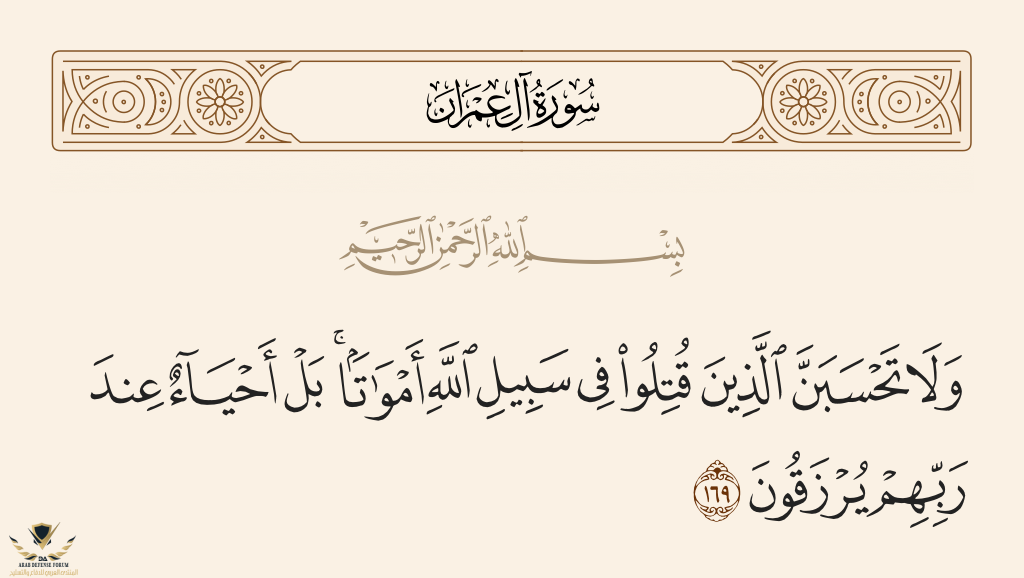 سُورَةُ آلِ عِمْرَان
بِسْمِ ٱللَّهِ ٱلرَّحْمَٰنِ ٱلرَّحِيمِ
وَلَا تَحْسَبَنَّ ٱلَّذِينَ قُتِلُوا۟ فِى سَبِيلِ ٱللَّهِ أَمْوَٰتًۢا ۚ بَلْ أَحْيَآءٌ عِندَ
رَبِّهِمْ يُرْزَقُونَ ١٦٩
DA
ARAB DEFENSE FORUM
المنتدى العربي للدفاع والتسليح